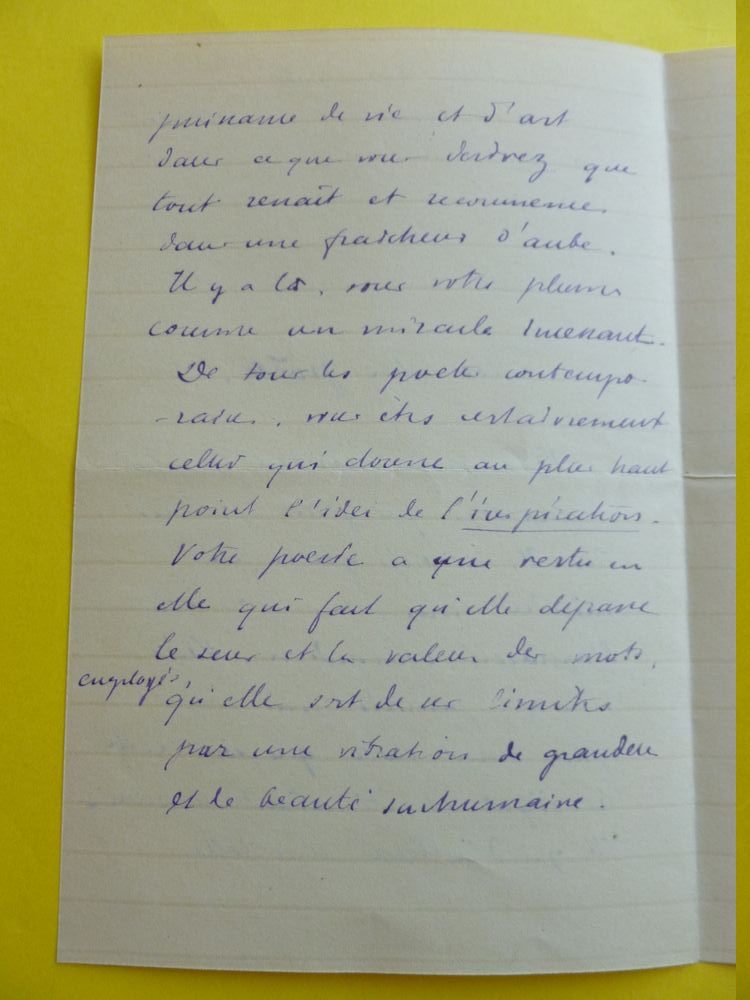 puissance de vie et d'art
dans ce que vous que
tout renaît et recommence
dans une fraîcheur d'aube.
Il y a là, sous votre plume
comme un miracle incessant.
De tous les poètes contempo-
rains, vous êtes certainement
celui qui donne au plus haut
point l'idée de l'inspiration.
Votre poésie a une vertu en
elle qui fait qu'elle dépasse
le sens et la valeur des mots,
employés,
qu'elle sort de ses limites
par une vibration de grandeur
et de beauté surhumaine.